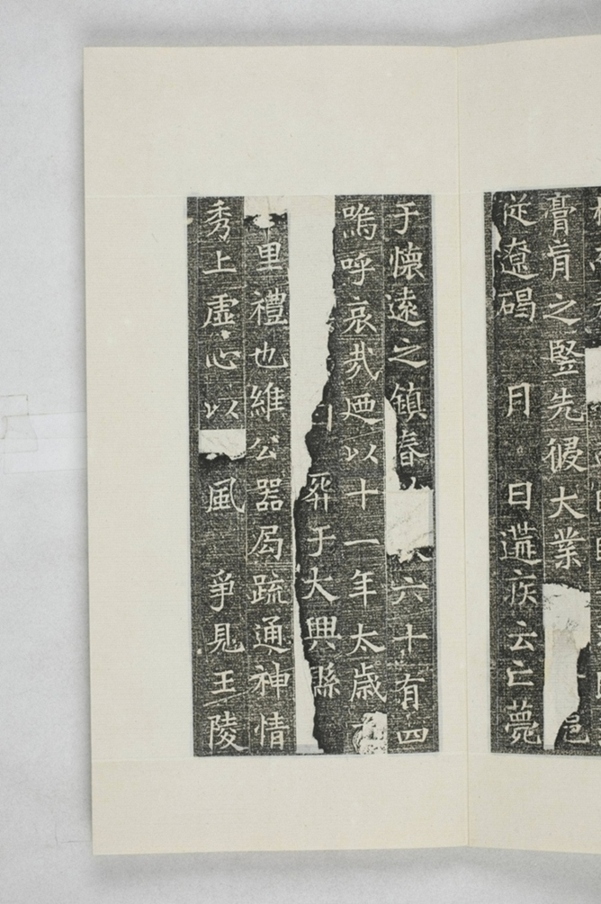 膏肓之竪先侵大業
從遼碣 月 日遘疾云亡薨
于懷遠之鎮春 六十有四
嗚呼哀哉迺以十一年太歲
葬于大興縣
里禮也維公器局疏通神情
秀上虛心以 風 爭見王陵